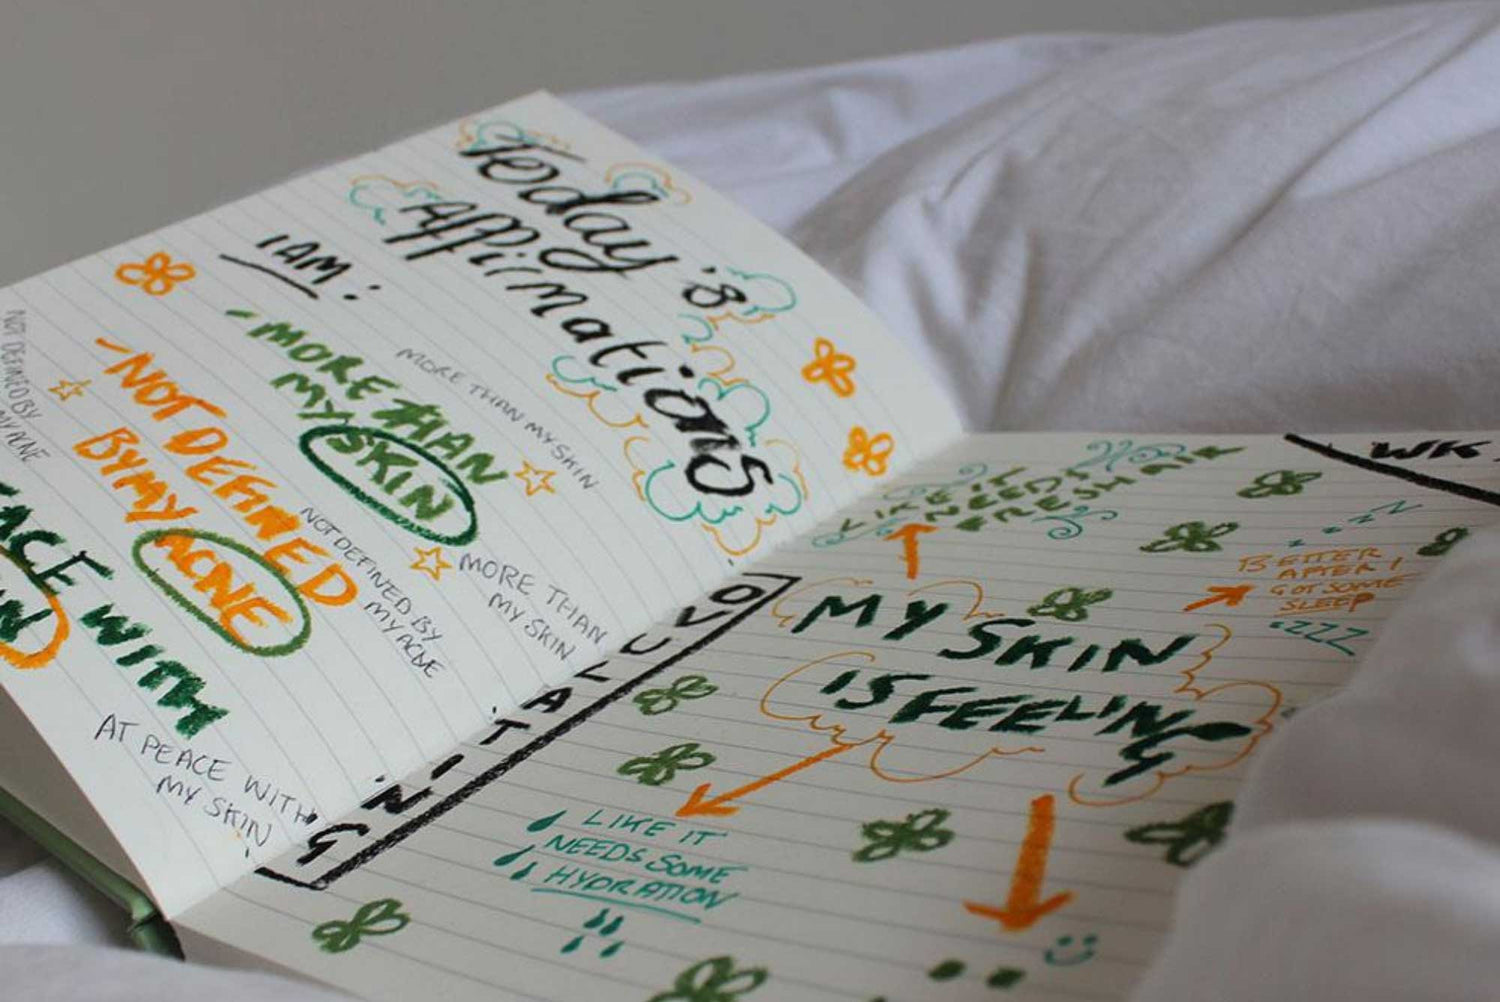 Today's
Affirmations
I AM:
- MORE THAN
MY SKIN
MORE THAN MY SKIN
- NOT DEFINED
BY MY ACNE
NOT DEFINED BY
MY ACNE
NOT DEFINED BY
MY ACNE
MORE THAN
MY SKIN
WITH
AT PEACE WITH
MY SKIN
OVULATING
WK
LIKE IT
NEEDS
FRESH AIR
zzzz
BETTER
AFTER I
GOT SOME
SLEEP
ZZZZ
MY SKIN
IS FEELING
LIKE IT
NEEDS SOME
HYDRATION